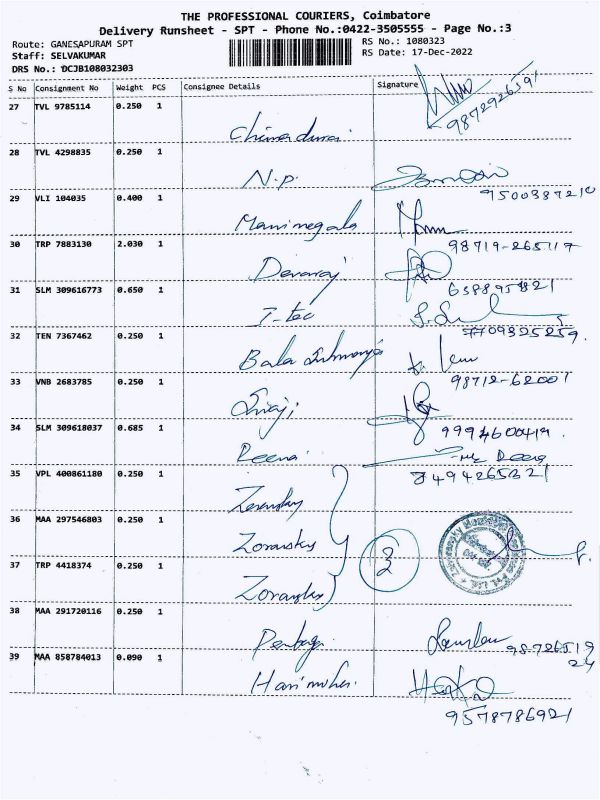 THE PROFESSIONAL COURIERS, Coimbatore
Delivery Runsheet - SPT - Phone No.:0422-3505555 - Page No.:3
Route: GANESAPURAM SPT
RS No.: 1080323
Staff: SELVAKUMAR
RS Date: 17-Dec-2022
DRS No.: DCJB108032303
S No Consignment No Weight PCS Consignee Details Signature
27 TVL 9785114 0.250 1
9872926591
Chinnadurai
28 TVL 4298835 0.250 1
N.P.
9500387210
29 VLI 104035 0.400 1
Manimegala
98719-265117
30 TRP 7883130 2.030 1
Devaraj
638895821
31 SLM 309616773 0.650 1
T-tec
7709325259.
32 TEN 7367462 0.250 1
Bala
98712-62001
33 VNB 2683785 0.250 1
Siraj
9994600419.
34 SLM 309618037 0.685 1
Reena
Reena
7494265321
35 VPL 400861180 0.250 1
36 MAA 297546803 0.250 1
3
37 TRP 4418374 0.250 1
38 MAA 291720116 0.250 1
98726519
24
39 MAA 858784013 0.090 1
9578786921